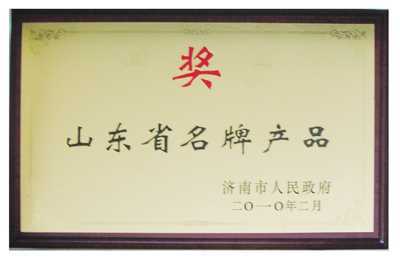 奖
山东省名牌产品
济南市人民政府
二〇一〇年二月